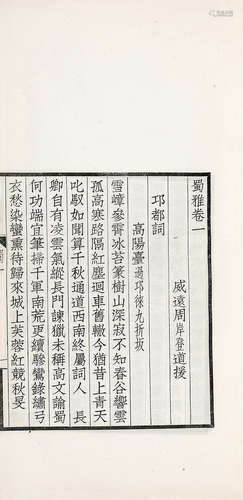 蜀雅卷一
威遠周岸登道援
邛都詞
高陽臺過邛徠九折坂
雪嶂參霄冰苔篆樹山深寂不知春谷響雲
孤高寒路隔紅塵迴車舊轍今猶昔上青天
叱馭如聞算千秋通道西南終屬詞人　長
卿自有凌雲氣縱長門諫獵未稱高文諭蜀
何功端宜筆掃千軍南荒更續驂鸞錄繡弓
衣愁染蠻熏待歸來城上芙蓉紅競秋旻